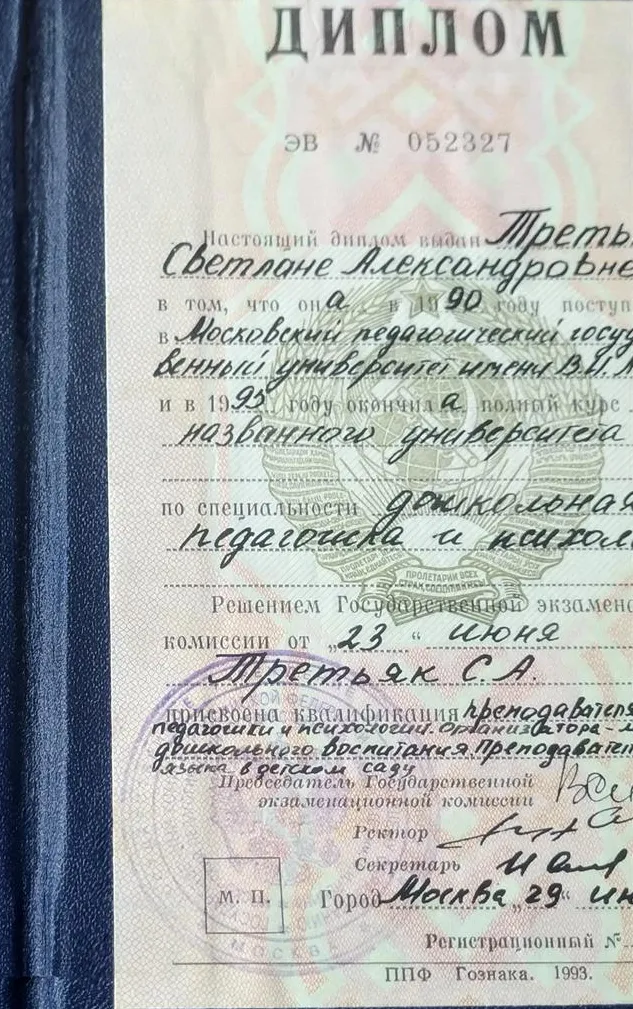 ДИПЛОМ
ЭВ № 052327
Настоящий диплом выдан Треть
Светлане Александровне
в том, что она в 1990 году поступ
в Московский педагогический госуд
венный университет имени В.И. Л
и в 1995 году окончила полный курс
названного университета
по специальности дошкольная
педагогика и психол
ПРОЛЕТАРИИ ВСЕХ
СТРАН, СОЕДИНЯЙТЕСЬ!
Решением Государственной экзамена
комиссии от „23 “ июня
Третьяк С.А.
присвоена квалификация преподавателя
педагогики и психологии. Организатора-м
дошкольного воспитания. Преподавател
языка в детском саду
Председатель Государственной
экзаменационной комиссии
Ректор
Секретарь
М. П.
Город Москва „29“ ию
МОСКВА
Регистрационный №
ППФ Гознака. 1993.